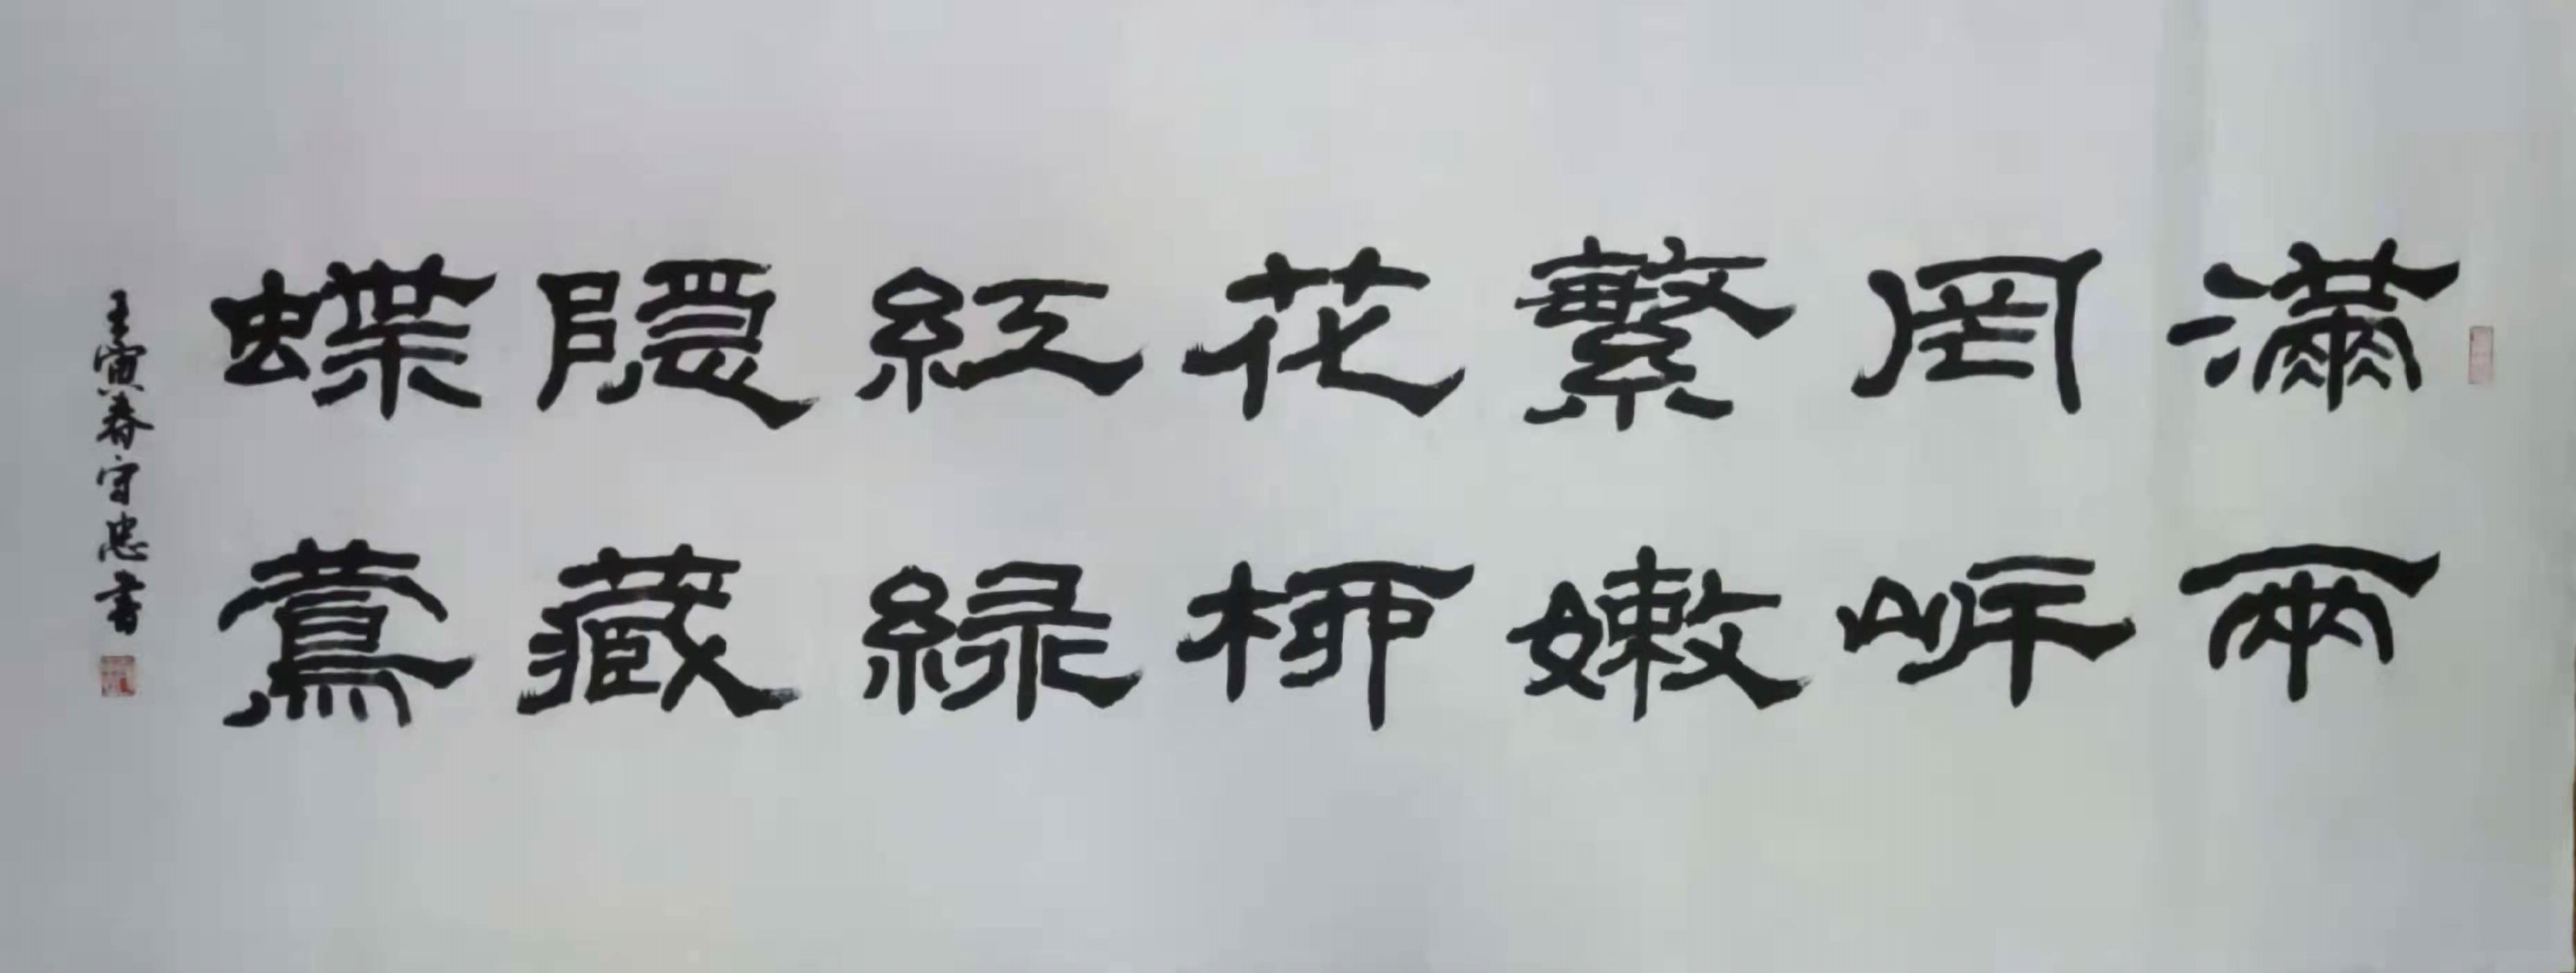 滿岡繁花紅隱蝶
兩岸嫩柳綠藏鶯
壬寅春守忠書